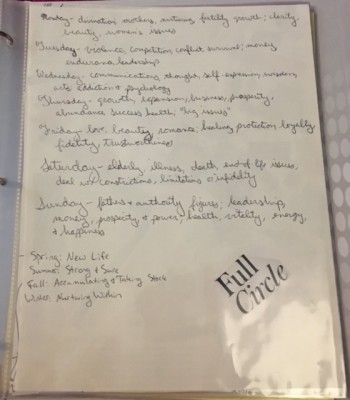 Monday - divination, mothers, nurturing, fertility growth; clarity,
beauty, women's issues
Tuesday - violence, competition, conflict, survival; money
endurance, leadership
Wednesday - communications, thought, self-expression, wisdom,
arts, addiction & psychology
Thursday - growth, expansion, business, prosperity,
abundance success health "big issues"
Friday - love, beauty, romance, healing, protection, loyalty
fidelity, trustworthiness
Saturday - elderly, illness, death, end of life issues,
deal w/ constrictions, limitations
Sunday - fathers & authority figures; leadership,
money, prosperity & power, health, vitality, energy,
& happiness
- Spring: New Life
Summer: Strong & Sure
Fall: Accumulating & Taking Stock
Winter: Nurturing Within
Full
Circle